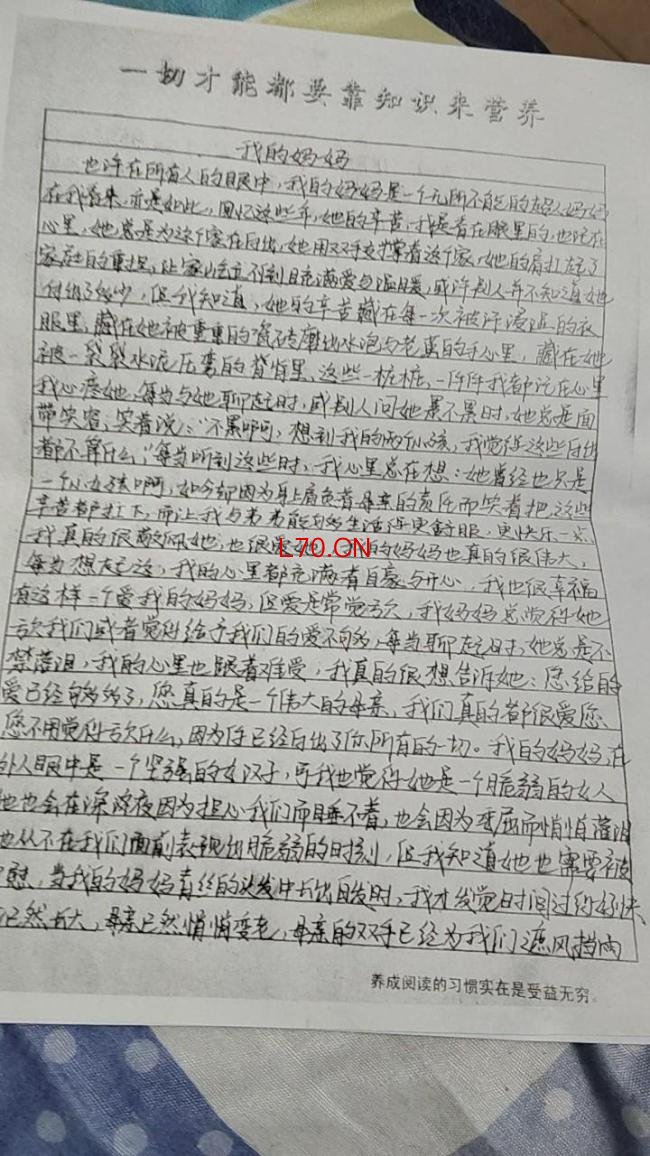 一切才能都要靠知识来营养
我的妈妈
也许在所有人的眼中,我的妈妈是一个无所不能的超人妈妈
在我看来,亦是如此,回忆这些年,她的辛苦,我是看在眼里的,也记在
心里,她总是为这个家在付出,她用双手支撑着这个家,她的肩扛起了
家庭的重担,让家庭充满爱与温暖,或许别人并不知道她
付出了多少,但我知道,她的辛苦藏在每一次被汗浸湿的衣
服里,藏在她被重重的瓷砖磨出水泡与老茧的手心里,藏在她
被一袋袋水泥压弯的背脊里,这些一桩桩,一件件我都记在心里
我心疼她,每当与她聊起时,或别人问她累不累时,她总是面
带笑容,笑着说:“不累啊,想到我的两个小孩,我觉得这些付出
都不算什么,”每当听到这些时,我心里总在想:她曾经也只是
一个小女孩啊,如今却因为身上肩负着母亲的责任而笑着把这些
辛苦都扛下,而让我与弟弟能够生活得更舒服,更快乐一点
我真的很敬佩她,也很爱她,我的妈妈也真的很伟大,
每当想起这,我的心里都充满着自豪与开心,我也很幸福
有这样一个爱我的妈妈,但爱是常觉亏欠,我妈妈总觉得她
亏欠我们或者觉得给予我们的爱不够,每当聊起时,她总是不
禁落泪,我的心里也跟着难受,我真的很想告诉她:您给的
爱已经够多了,您真的是一个伟大的母亲,我们真的都很爱您
您不用觉得亏欠什么,因为你已经付出了你所有的一切。我的妈妈,在
外人眼中是一个坚强的女汉子,可我也觉得她是一个脆弱的女人
她也会在深夜因为担心我们而睡不着,也会因为委屈而悄悄落泪
也从不在我们面前表现出脆弱的时刻,但我知道她也需要被
慰,当我的妈妈青丝的头发中长出白发时,我才发觉时间过得好快
已然长大,母亲已然悄悄变老,母亲的双手已经为我们遮风挡雨
养成阅读的习惯实在是受益无穷。
L70.ON